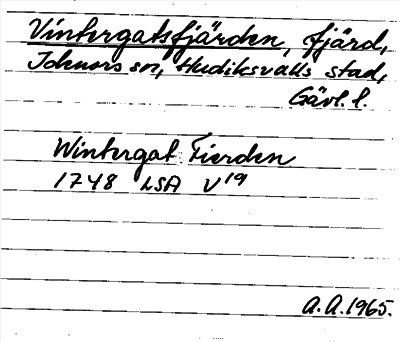 Vintergatsfjärden, fjärd,
Idenors sn, Hudiksvalls stad,
Gävl. l.
Wintergat Fierden
1748 LSA V19
A.A. 1965.